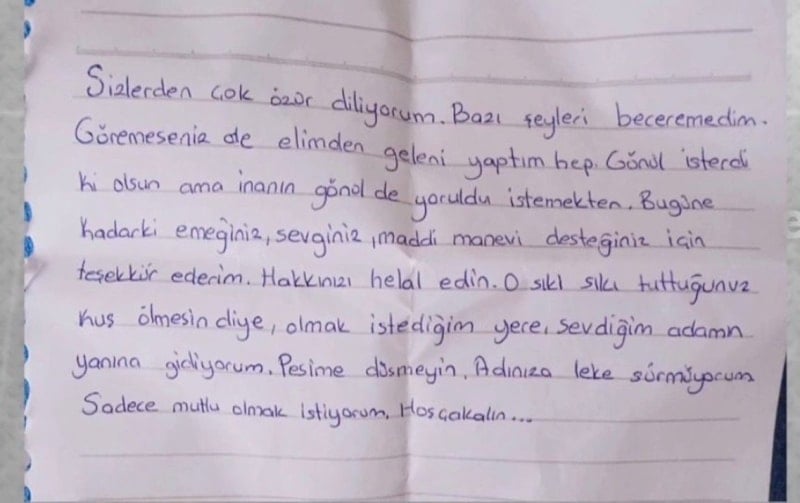 Sizlerden çok özür diliyorum. Bazı şeyleri beceremedim.
Göremeseniz de elimden geleni yaptım hep. Gönül isterdi
ki olsun ama inanın gönül de yoruldu istemekten. Bugüne
kadarki emeğiniz, sevginiz, maddi manevi desteğiniz için
teşekkür ederim. Hakkınızı helal edin. O sıkı sıkı tuttuğunuz
kus ölmesin diye, olmak istediğim yere, sevdiğim adamın
yanına gidiyorum. Peşime düşmeyin. Adınıza leke sürmüyorum
Sadece mutlu olmak istiyorum. Hosçakalın...